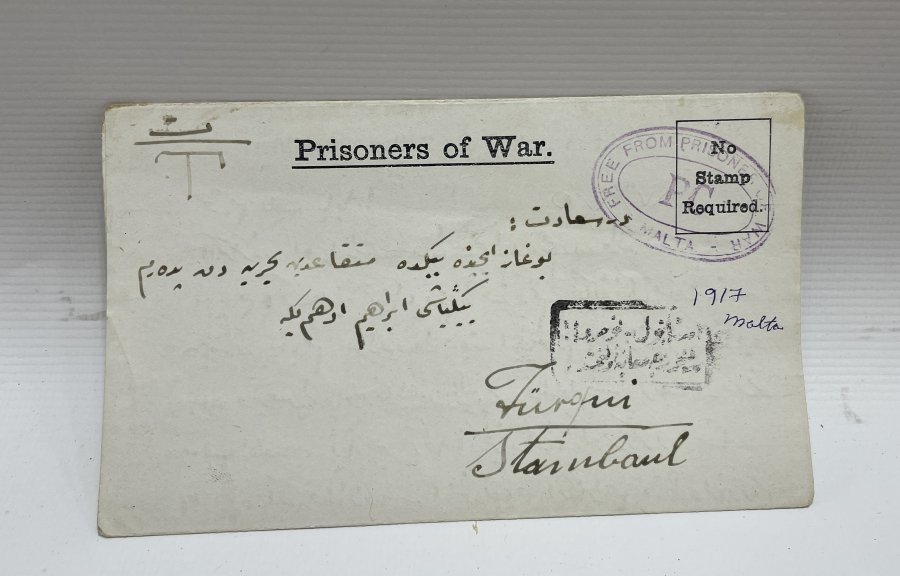 Prisoners of War.
No
Stamp
Required.
FREE FROM PRISONER OF WAR - MALTA -
PC
در سعادت :
بوغاز ایچنده بیکده متقاعدین بحریه دن پدرم
بیکباشی ابراهیم ادهم بكه
1917
Malta
Türqui
Stambaul